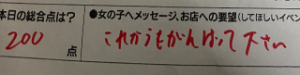 本日の総合点は？
●女の子へメッセージ、お店への要望(してほしいイベン
200
点
これからもがんばって下さい